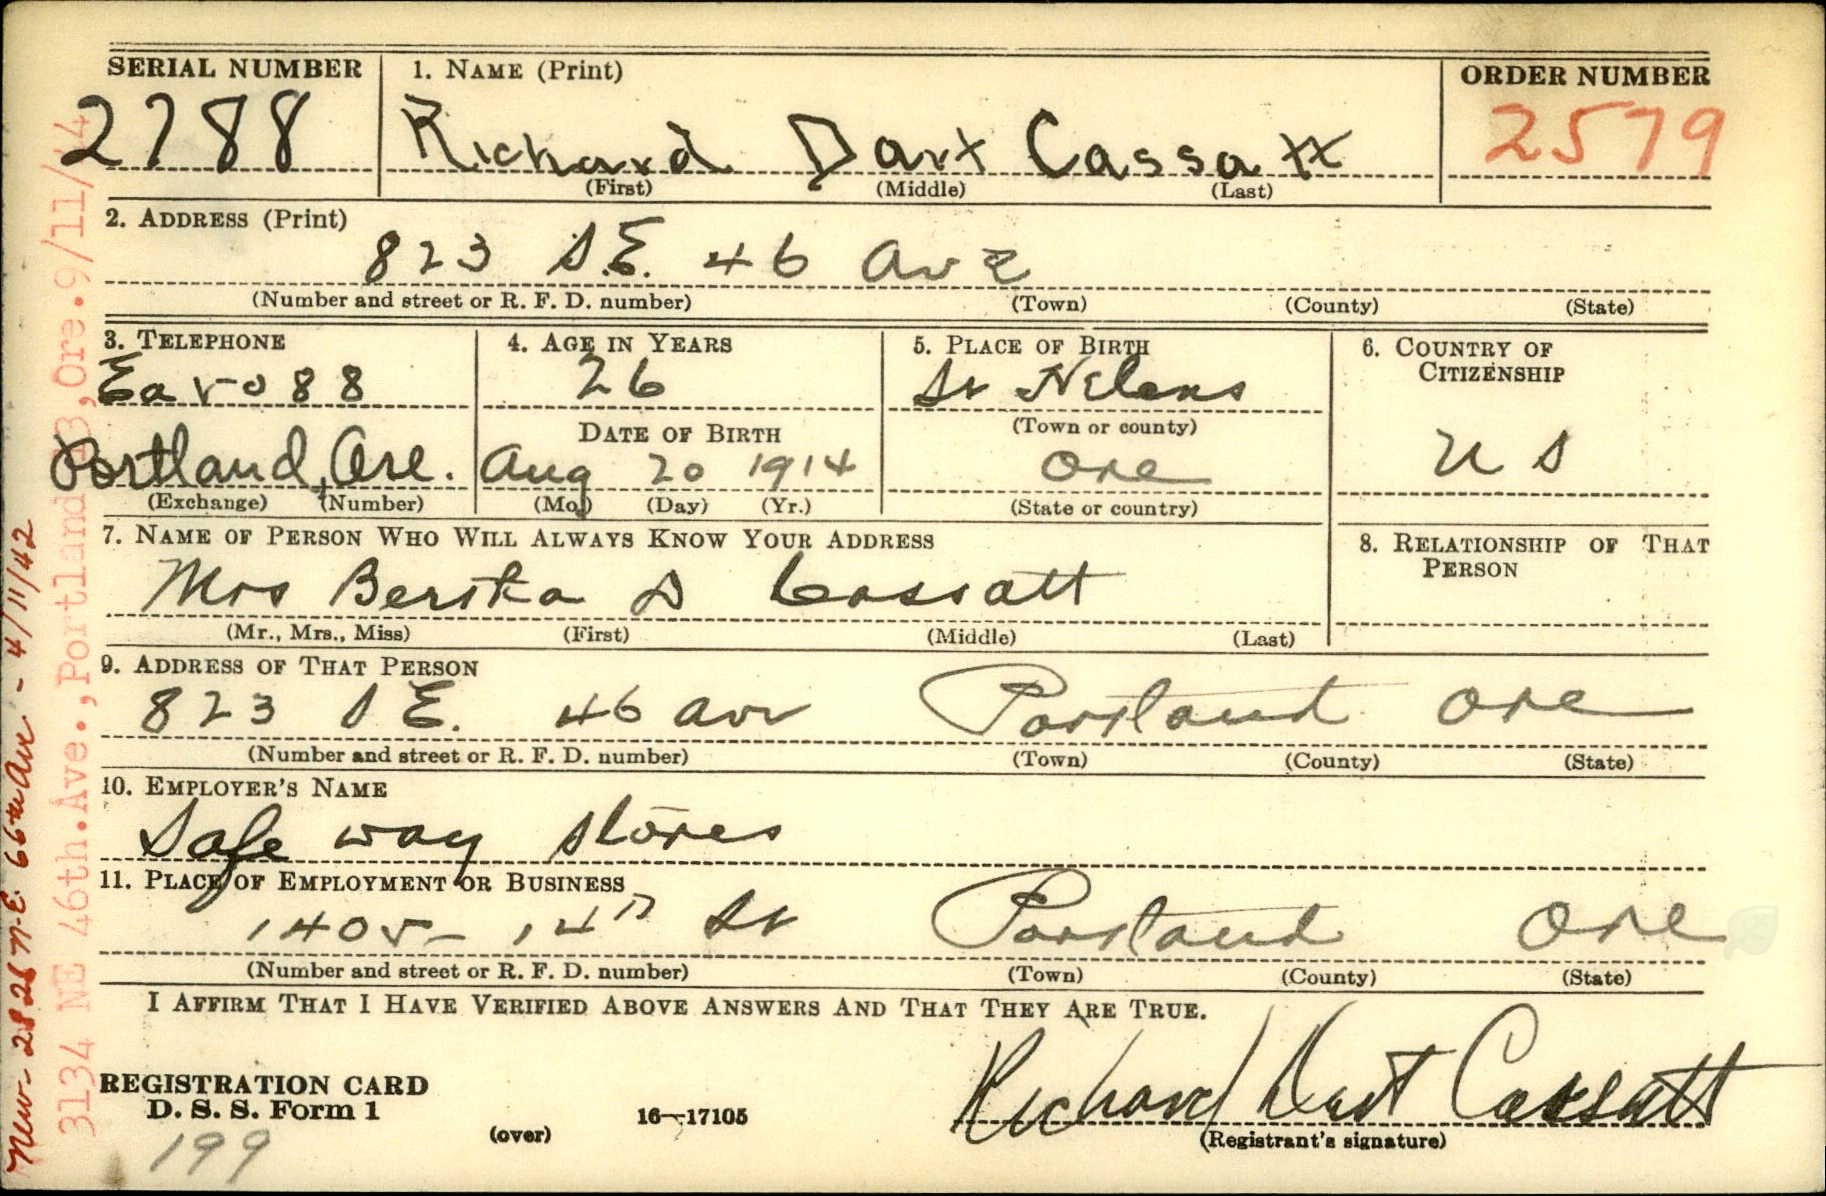 SERIAL NUMBER 1. NAME (Print) ORDER NUMBER
2788 Richard Dart Cassatt 2579
(First) (Middle) (Last)
2. ADDRESS (Print)
823 S.E. 46 Ave
(Number and street or R. F. D. number) (Town) (County) (State)
3. TELEPHONE 4. AGE IN YEARS 5. PLACE OF BIRTH 6. COUNTRY OF CITIZENSHIP
Ea 5088 26 St Helens
(Town or county)
DATE OF BIRTH
Portland, Ore. Aug 20 1914 Ore U S
(Exchange) (Number) (Mo.) (Day) (Yr.) (State or country)
7. NAME OF PERSON WHO WILL ALWAYS KNOW YOUR ADDRESS 8. RELATIONSHIP OF THAT PERSON
Mrs D Cassatt
(Mr., Mrs., Miss) (First) (Middle) (Last)
9. ADDRESS OF THAT PERSON
823 S E. 46 Ave Portland Ore
(Number and street or R. F. D. number) (Town) (County) (State)
10. EMPLOYER'S NAME
Safe way stores
11. PLACE OF EMPLOYMENT OR BUSINESS
1405 - 14th St Portland Ore
(Number and street or R. F. D. number) (Town) (County) (State)
I AFFIRM THAT I HAVE VERIFIED ABOVE ANSWERS AND THAT THEY ARE TRUE.
Richard Dart Cassatt
REGISTRATION CARD
D. S. S. Form 1 16—17105
(over) (Registrant's signature)
199
New - 2826 N.E. 66th Ave - 4/11/42
3134 NE 46th.Ave.,Portland 13,Ore.9/11/44